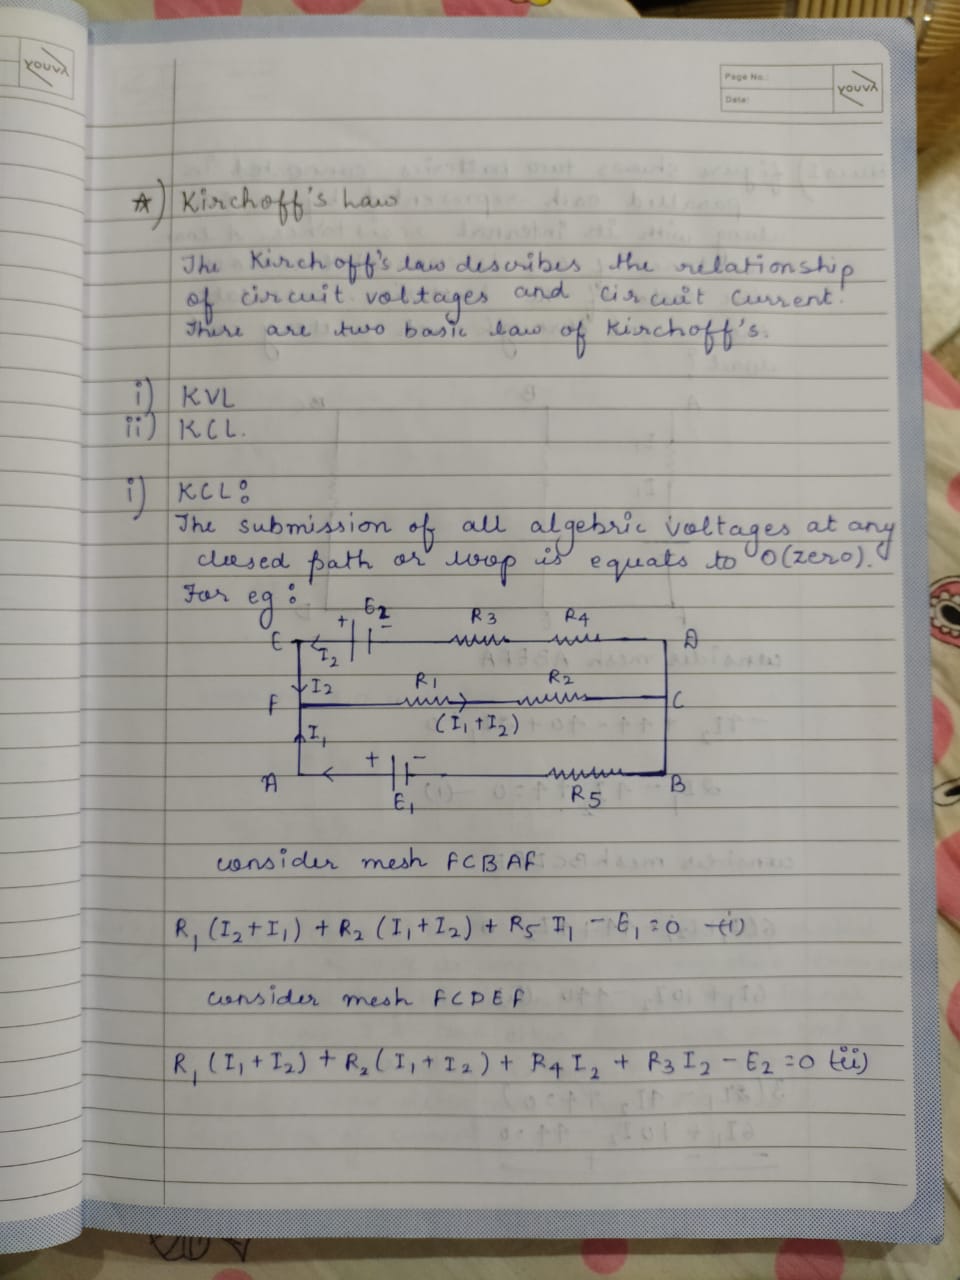 youva
Page No.:
Date:
youva
☆) Kirchoff's Law
The Kirchoff's law describes the relationship
of circuit voltages and circuit current.
There are two basic law of Kirchoff's.
i) KVL
ii) KCL.
i) KCL:
The submission of all algebric voltages at any
closed path or loop is equals to 0(zero).
For eg:
E I₂ + E₂ - R₃ R₄ D
I₂ R₁ R₂
F (I₁+I₂) C
I₁
A + E₁ - R₅ B
consider mesh FCBAF
R₁ (I₂+I₁) + R₂ (I₁+I₂) + R₅ I₁ - E₁ = 0 -(i)
consider mesh FCDEF
R₁ (I₁+I₂) + R₂ (I₁+I₂) + R₄ I₂ + R₃ I₂ - E₂ = 0 (ii)